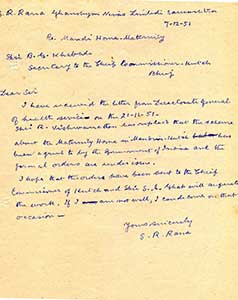 S. R. Rana Ghanshyam Nivas Limbdi
7-12-51
Re. Mandvi Home-Maternity
Shri B. G. Khaboda
Secretary to the Chief Commissioner-Kutch
Bhuj
Dear Sir
I have received the letter from Directorate General
of health services on the 21-11-51.
Shri R. Vishwanathan has replied that the scheme
about the Maternity Home in Mandvi-Kutch has
been agreed to by the Government of India and the
formal orders are under issue.
I hope that the orders have been sent to the Chief
Commissioner of Kutch and Shri S. A. Ghatge will
the work. If I am not well, I can do over on that
occasion—
Yours sincerely
S. R. Rana